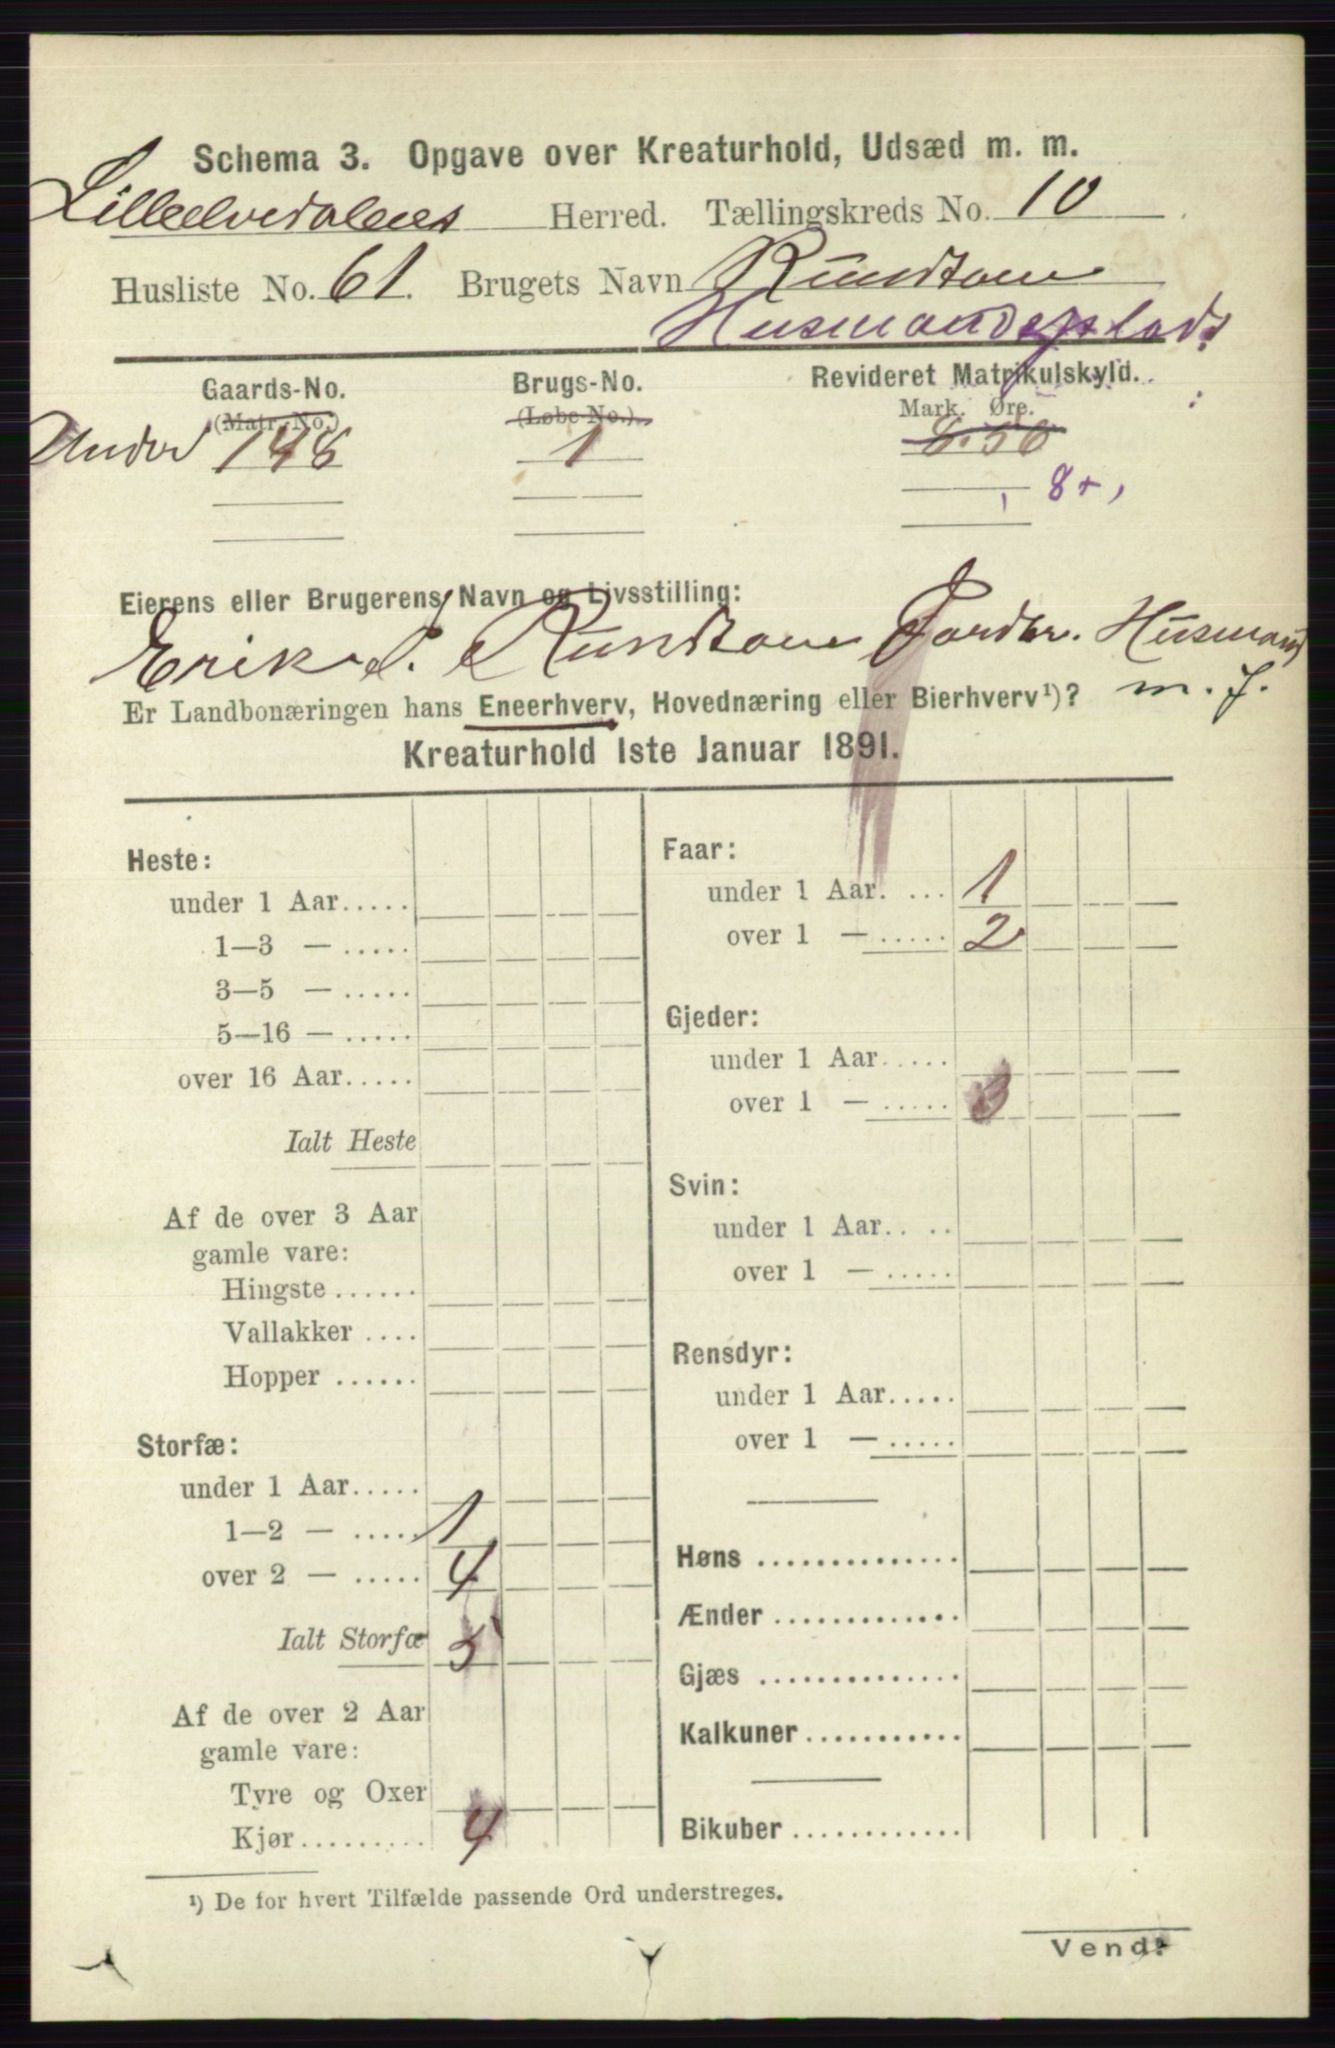 Schema 3. Opgave over Kreaturhold, Udsæd m. m.
Lilleelvedalens Herred. Tællingskreds No. 10
Husliste No. 61. Brugets Navn Rundtom
Husmandsplads
Gaards-No. Brugs-No. Revideret Matrikulskyld.
(Matr.-No.) (Løbe-No.) Mark. Øre.
Under 148 1
8+,
Eierens eller Brugerens Navn og Livsstilling:
Erik S. Rundtom Jordbr. Husmand
m. J.
Er Landbonæringen hans Eneerhverv, Hovednæring eller Bierhverv¹)?
Kreaturhold 1ste Januar 1891.
Heste:
under 1 Aar.....
1—3 — .....
3—5 — .....
5—16 — .....
over 16 Aar.....
Ialt Heste
Af de over 3 Aar
gamle vare:
Hingste ......
Vallakker ....
Hopper ......
Storfæ:
under 1 Aar.....
1—2 — ..... 1
over 2 — ..... 4
Ialt Storfæ 5
Af de over 2 Aar
gamle vare:
Tyre og Oxer
Kjør......... 4
Faar:
under 1 Aar. ... 1
over 1 — ..... 2
Gjeder:
under 1 Aar.....
over 1 — .....
Svin:
under 1 Aar.. ..
over 1 — .....
Rensdyr:
under 1 Aar.....
over 1 — .....
Høns ..............
Ænder .............
Gjæs ..............
Kalkuner ...........
Bikuber .............
¹) De for hvert Tilfælde passende Ord understreges.
Vend!